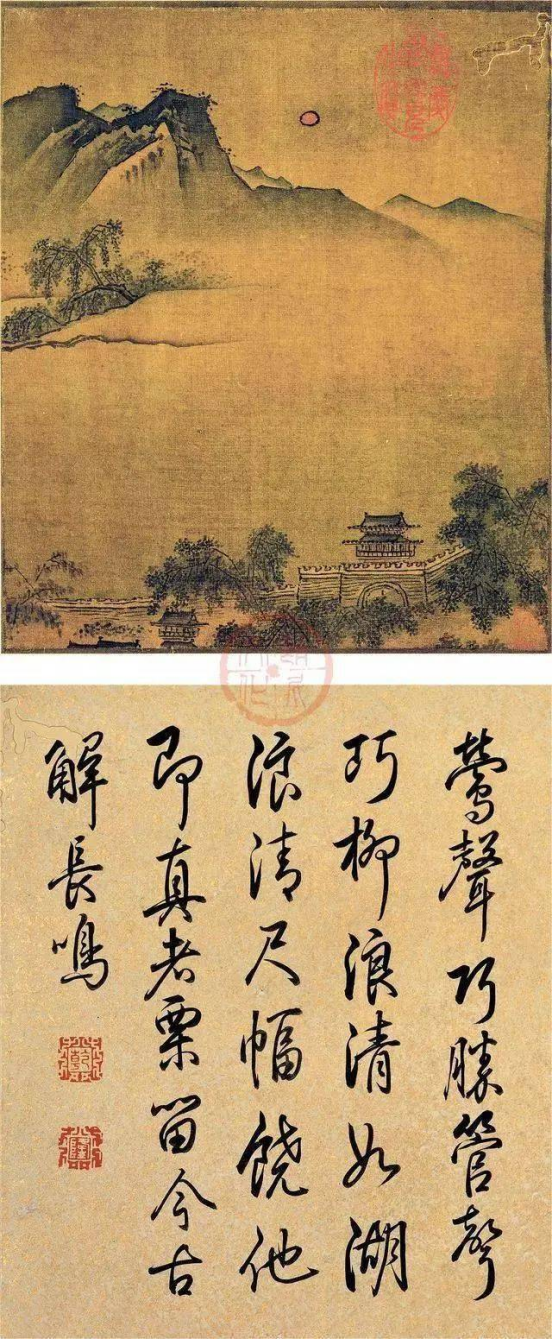 鶯聲巧勝管聲
巧柳浪清如湖
浪清尺幅饒他
即真者栗留今古
解長鳴